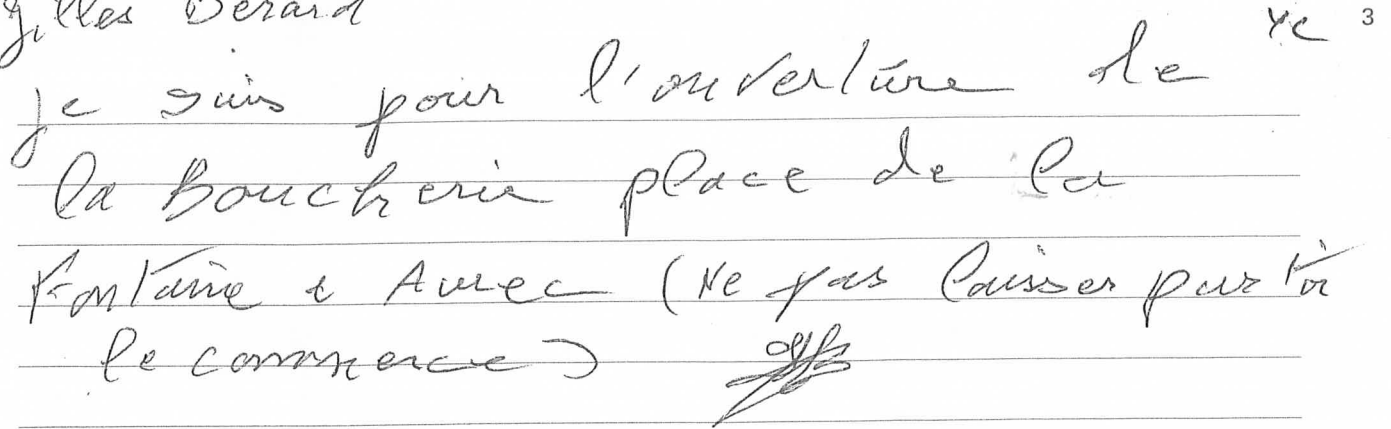 Gilles Berard
4C 3
je suis pour l'ouverture de
la Boucherie place de la
Fontaine à Aurec (Ne pas laisser partir
le commerce)